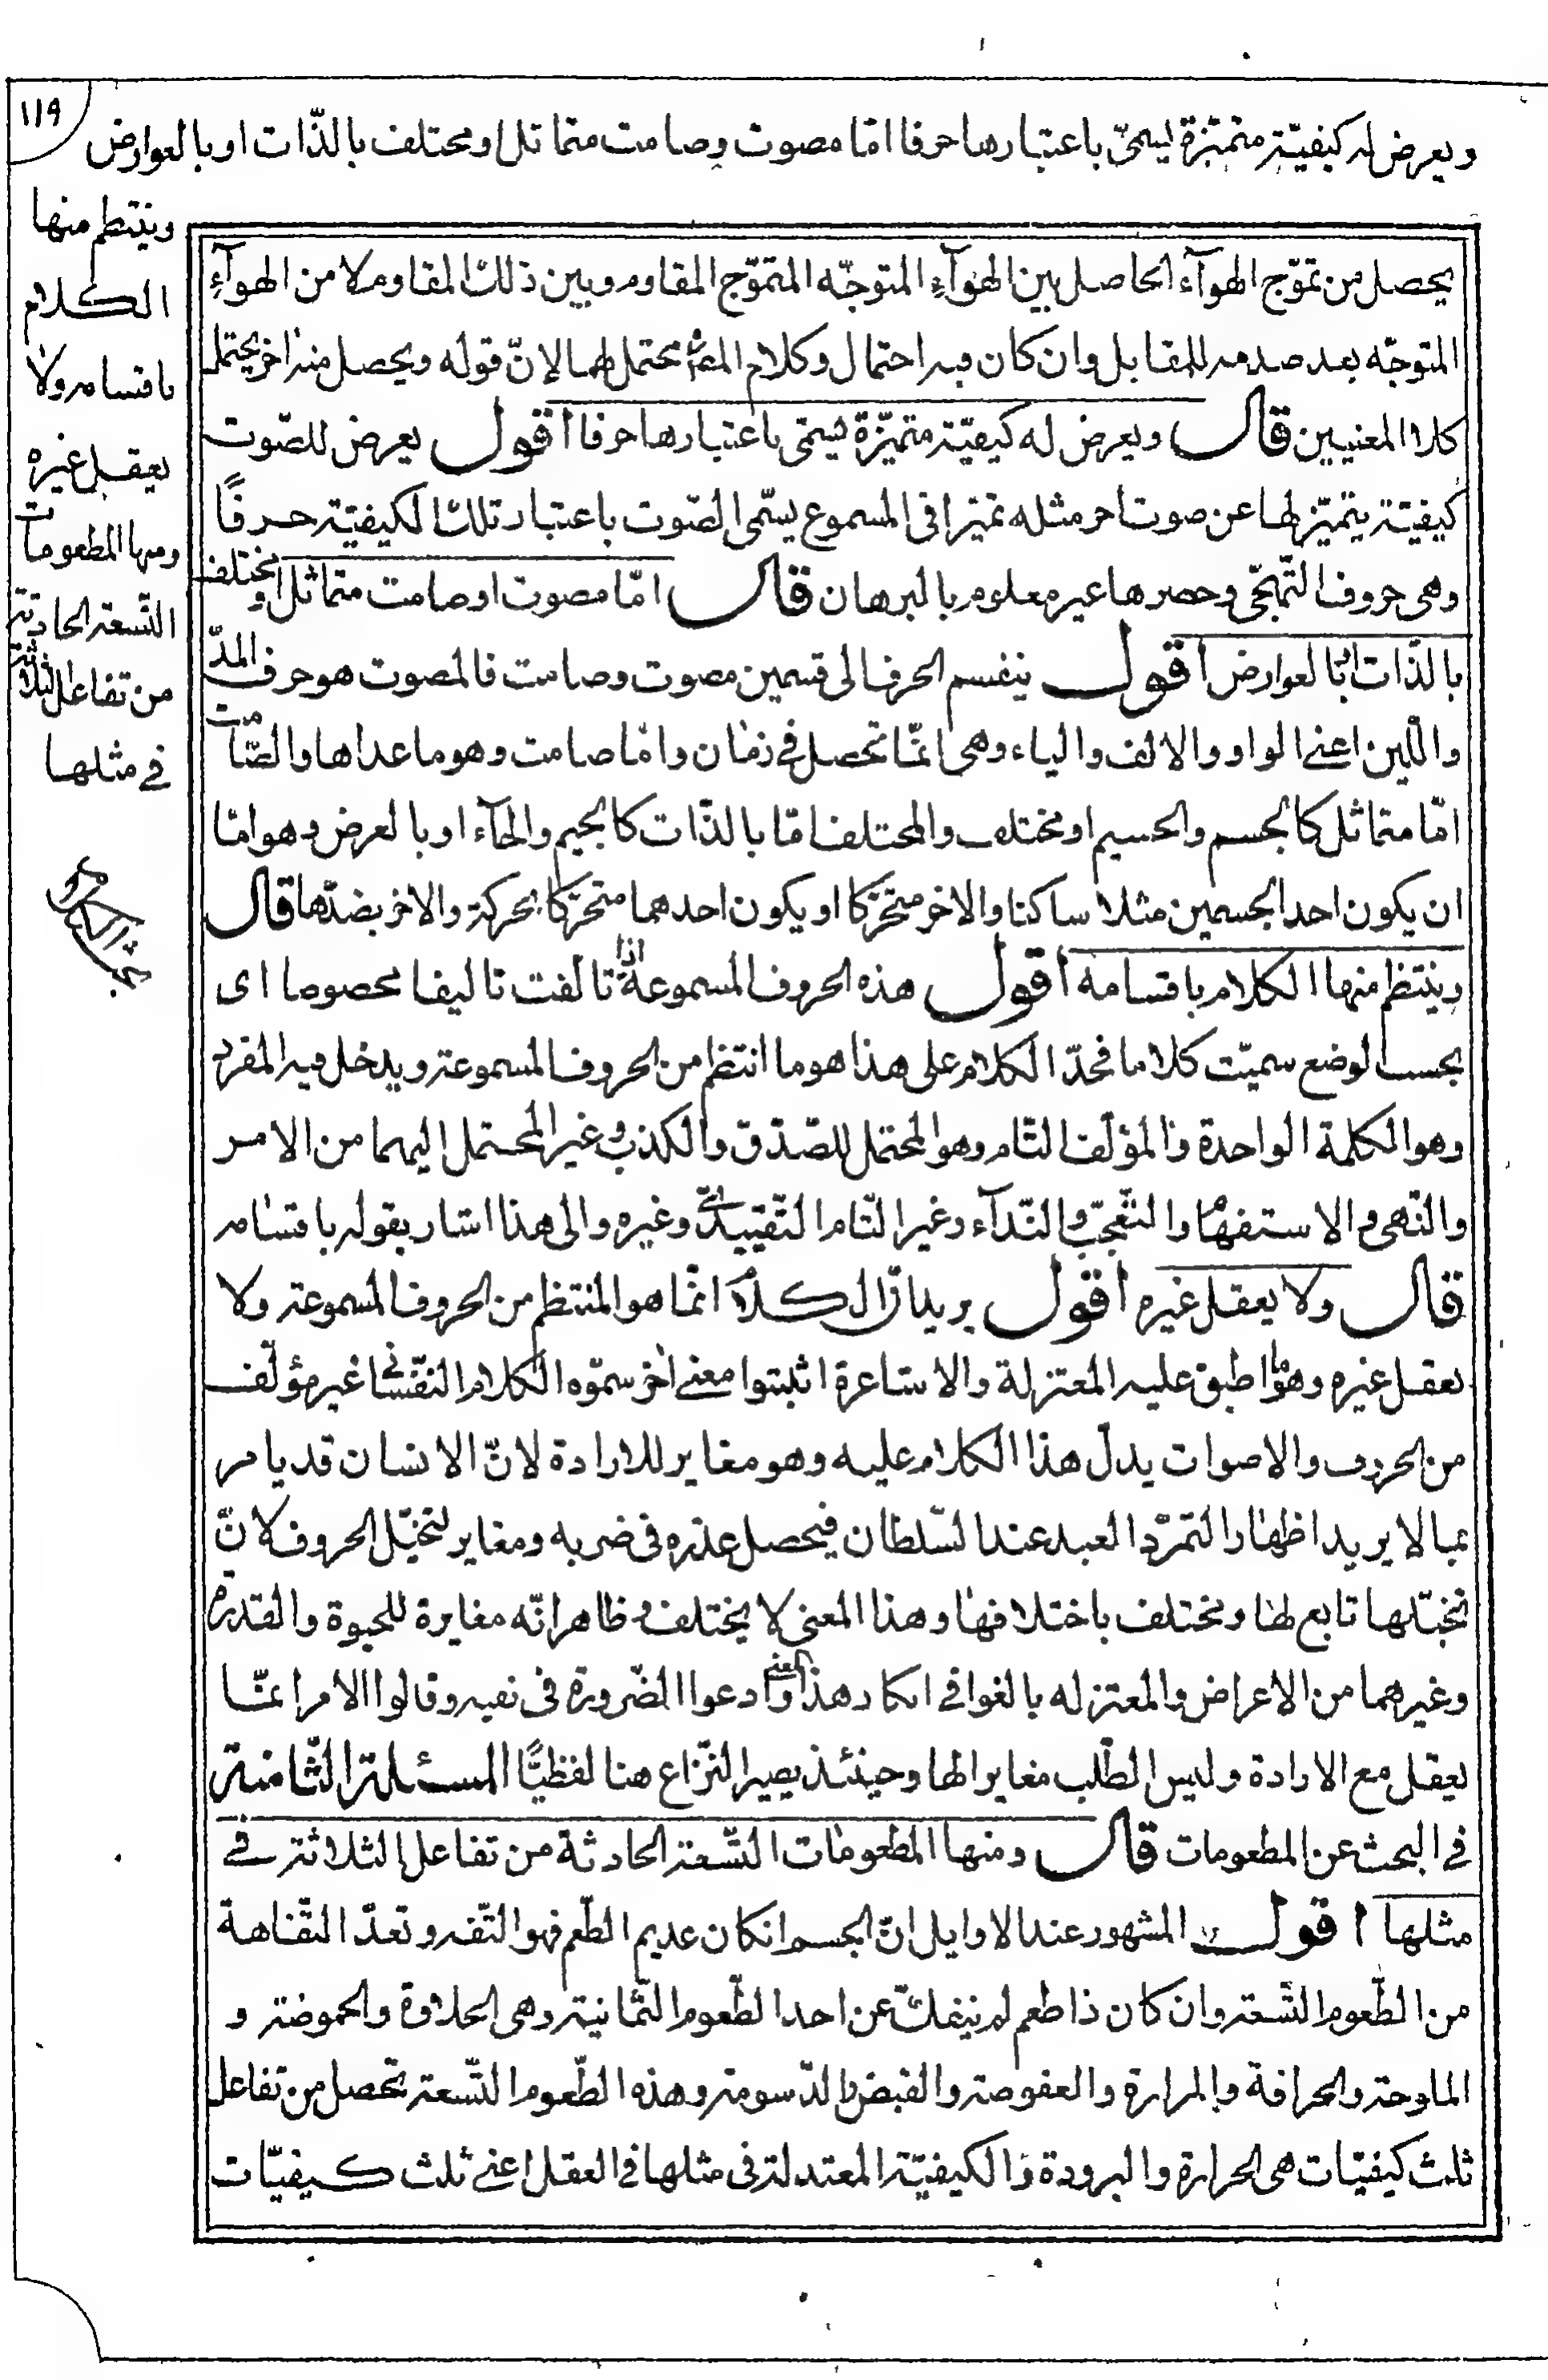 ١١٩
ويعرض له كيفيّة متميّزة يسمّى باعتبارها حرفا امّا مصوت وصامت متماثل او مختلف بالذّات او بالعوارض
وينتظم منها
الكلام
باقسامه ولا
يعقل غيره
ومنها المطعومات
التّسعة الحادثة
من تفاعل الثلاثة
في مثلها
يحصل من تموّج الهوآء الحاصل بين الهوآءِ المتوجّه المتموّج المقاوم وبين ذلك المقاوم لا من الهوآءِ
المتوجّه بعد صدمه للمقابل وان كان فيه احتمال وكلام المصنّف محتمل لهما لإنّ قوله ويحصل منه اخر يحتمل
كلا المعنيين قال ويعرض له كيفيّة متميّزة يسمّى باعتبارها حرفا اقول يعرض للصّوت
كيفيّة يتميّز لها عن صوت اخر مثله تميّزا في المسموع يسمّى الصّوت باعتبار تلك الكيفيّة حرفًا
وهي حروف التّهجّي وحصرها غير معلوم بالبرهان قال امّا مصوت او صامت متماثل او مختلف
بالذّات او بالعوارض اقول ينقسم الحرف الى قسمين مصوت وصامت فالمصوت هو حرف المدّ
واللّين اعنى الواو والالف والياء وهى انّما تحصل في زمان وامّا صامت وهو ما عداها والصّامت
امّا متماثل كالجسم والجسيم او مختلف والمختلف امّا بالذّات كالجيم والحآء او بالعرض وهو امّا
ان يكون احد الجسمين مثلا ساكنا والاخر متحرّكا او يكون احدهما متحرّكا بحركة والاخر بضدّها قال
وينتظم منها الكلام باقسامه اقول هذه الحروف المسموعة اذا تالفت تاليفا مخصوصا اى
بحسب الوضع سميّت كلاما فحدّ الكلام على هذا هو ما انتظم من الحروف المسموعة ويدخل فيه المفرد
وهو الكلمة الواحدة والمؤلّف التّام وهو المحتمل للصّدق والكذب وغير المحتمل اليهما من الامر
والنّهى والاستفهام والتّعجّب والنّدآء وغير التّام التّقييدىّ وغيره والى هذا اشار بقوله باقسامه
قال ولا يعقل غيره اقول يريد انّ الكلام انّما هو المنتظم من الحروف المسموعة ولا
يعقل غيره وهو ما اطبق عليه المعتزلة والاشاعرة اثبتوا معنى اخر سمّوه الكلام النّفسانى غير مؤلّف
من الحروف والاصوات يدلّ هذا الكلام عليه وهو مغاير للارادة لانّ الانسان قد يامر
بما لا يريد اظهارا لتمرّد العبد عند السّلطان فيحصل عذره في ضربه ومغاير لتخيّل الحروف لانّ
تخيّلها تابع لها ويختلف باختلافها وهذا المعنى لا يختلف وظاهر انّه مغايرة للحيوة والقدرة
وغيرهما من الاعراض والمعتزله بالغوا في انكار هذا المعنى وادعوا الضّرورة في نفيه وقالوا الامر انمّا
يعقل مع الارادة وليس الطّلب مغايرا لها وحينئذ يصير النّزاع هنا لفظيًّا المسئلة الثّامنة
في البحث عن المطعومات قال ومنها المطعومات التّسعة الحادثة من تفاعل الثلاثة في
مثلها اقول المشهور عند الاوايل انّ الجسم ان كان عديم الطّعم فهو التّفه وتعدّ التّفاهة
من الطّعوم التّسعة وان كان ذا طعم لم ينفكّ عن احد الطّعوم الثّمانية وهى الحلاوة والحموضة و
الملوحة والحرافة والمرارة والعفوصة والقبض والدّسومة وهذه الطّعوم التّسعة تحصل من تفاعل
ثلث كيفيّات هى الحرارة والبرودة والكيفيّة المعتدلة في مثلها في العقل اعنى ثلث كيفيّات